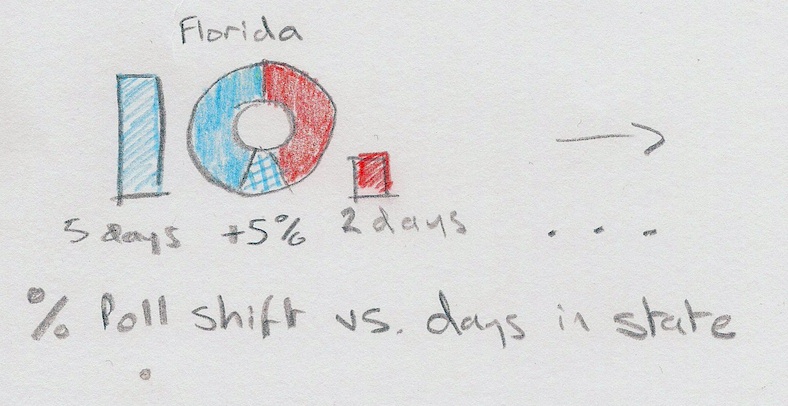 Florida
5 days +5% 2 days . . .
% Poll shift vs. days in state